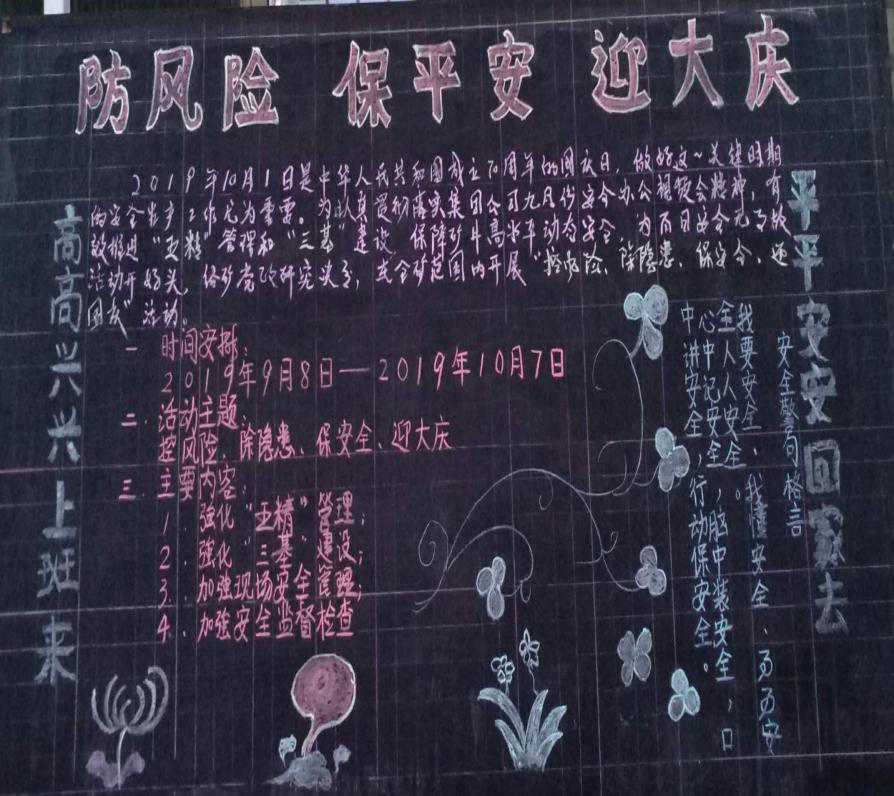 防风险 保平安 迎大庆
2019年10月1日是中华人民共和国成立70周年的国庆日，做好这~关键时期
的安全生产工作尤为重要。为认真贯彻落实集团公司九月份安全办公视频会精神，有
效推进"五精"管理和"三基"建设，保障矿井高水平动态安全，为百日安全
活动开好头，经矿党政研究决定，在全矿范围内开展"控风险、除隐患、保安全、迎
国庆"活动。
高高兴兴上班来
一 时间安排：
2019年9月8日—2019年10月7日
二、活动主题
控风险、除隐患、保安全、迎大庆
三、主要内容：
1、强化"五精"管理；
2、强化"三基"建设；
3、加强现场安全管理；
4、加强安全监督检查
平平安安回家去
安全警句格言
我要安全，我懂安全、
全人人安全。
心中记安全，脑中装安全，口
中讲安全，行动保安全。